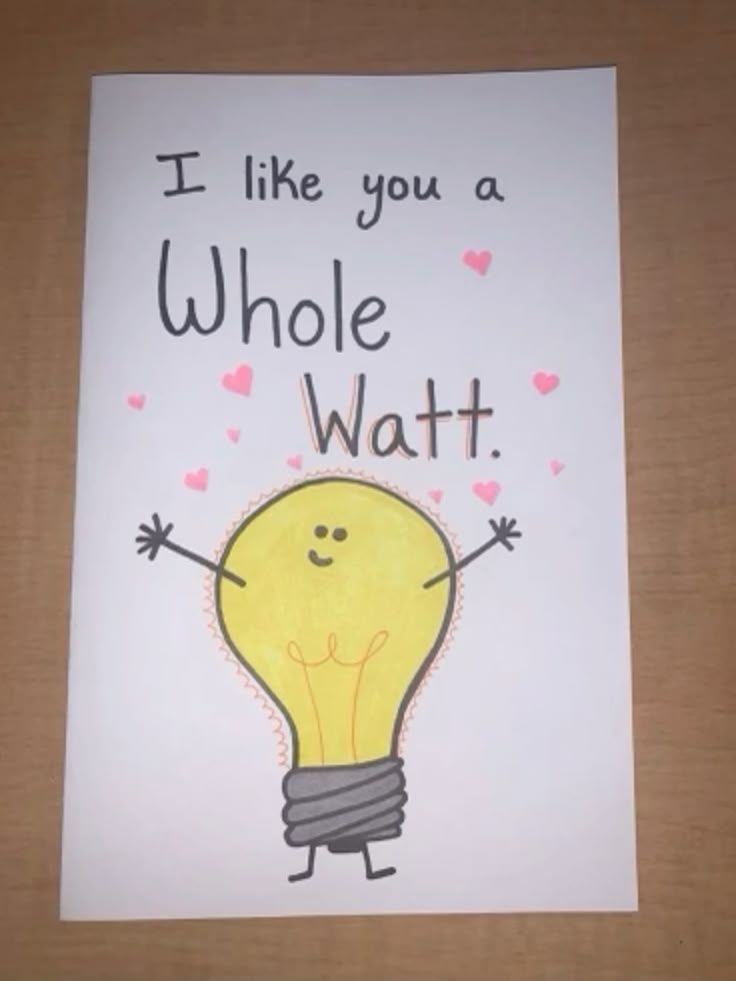 I like you a
Whole
Watt.